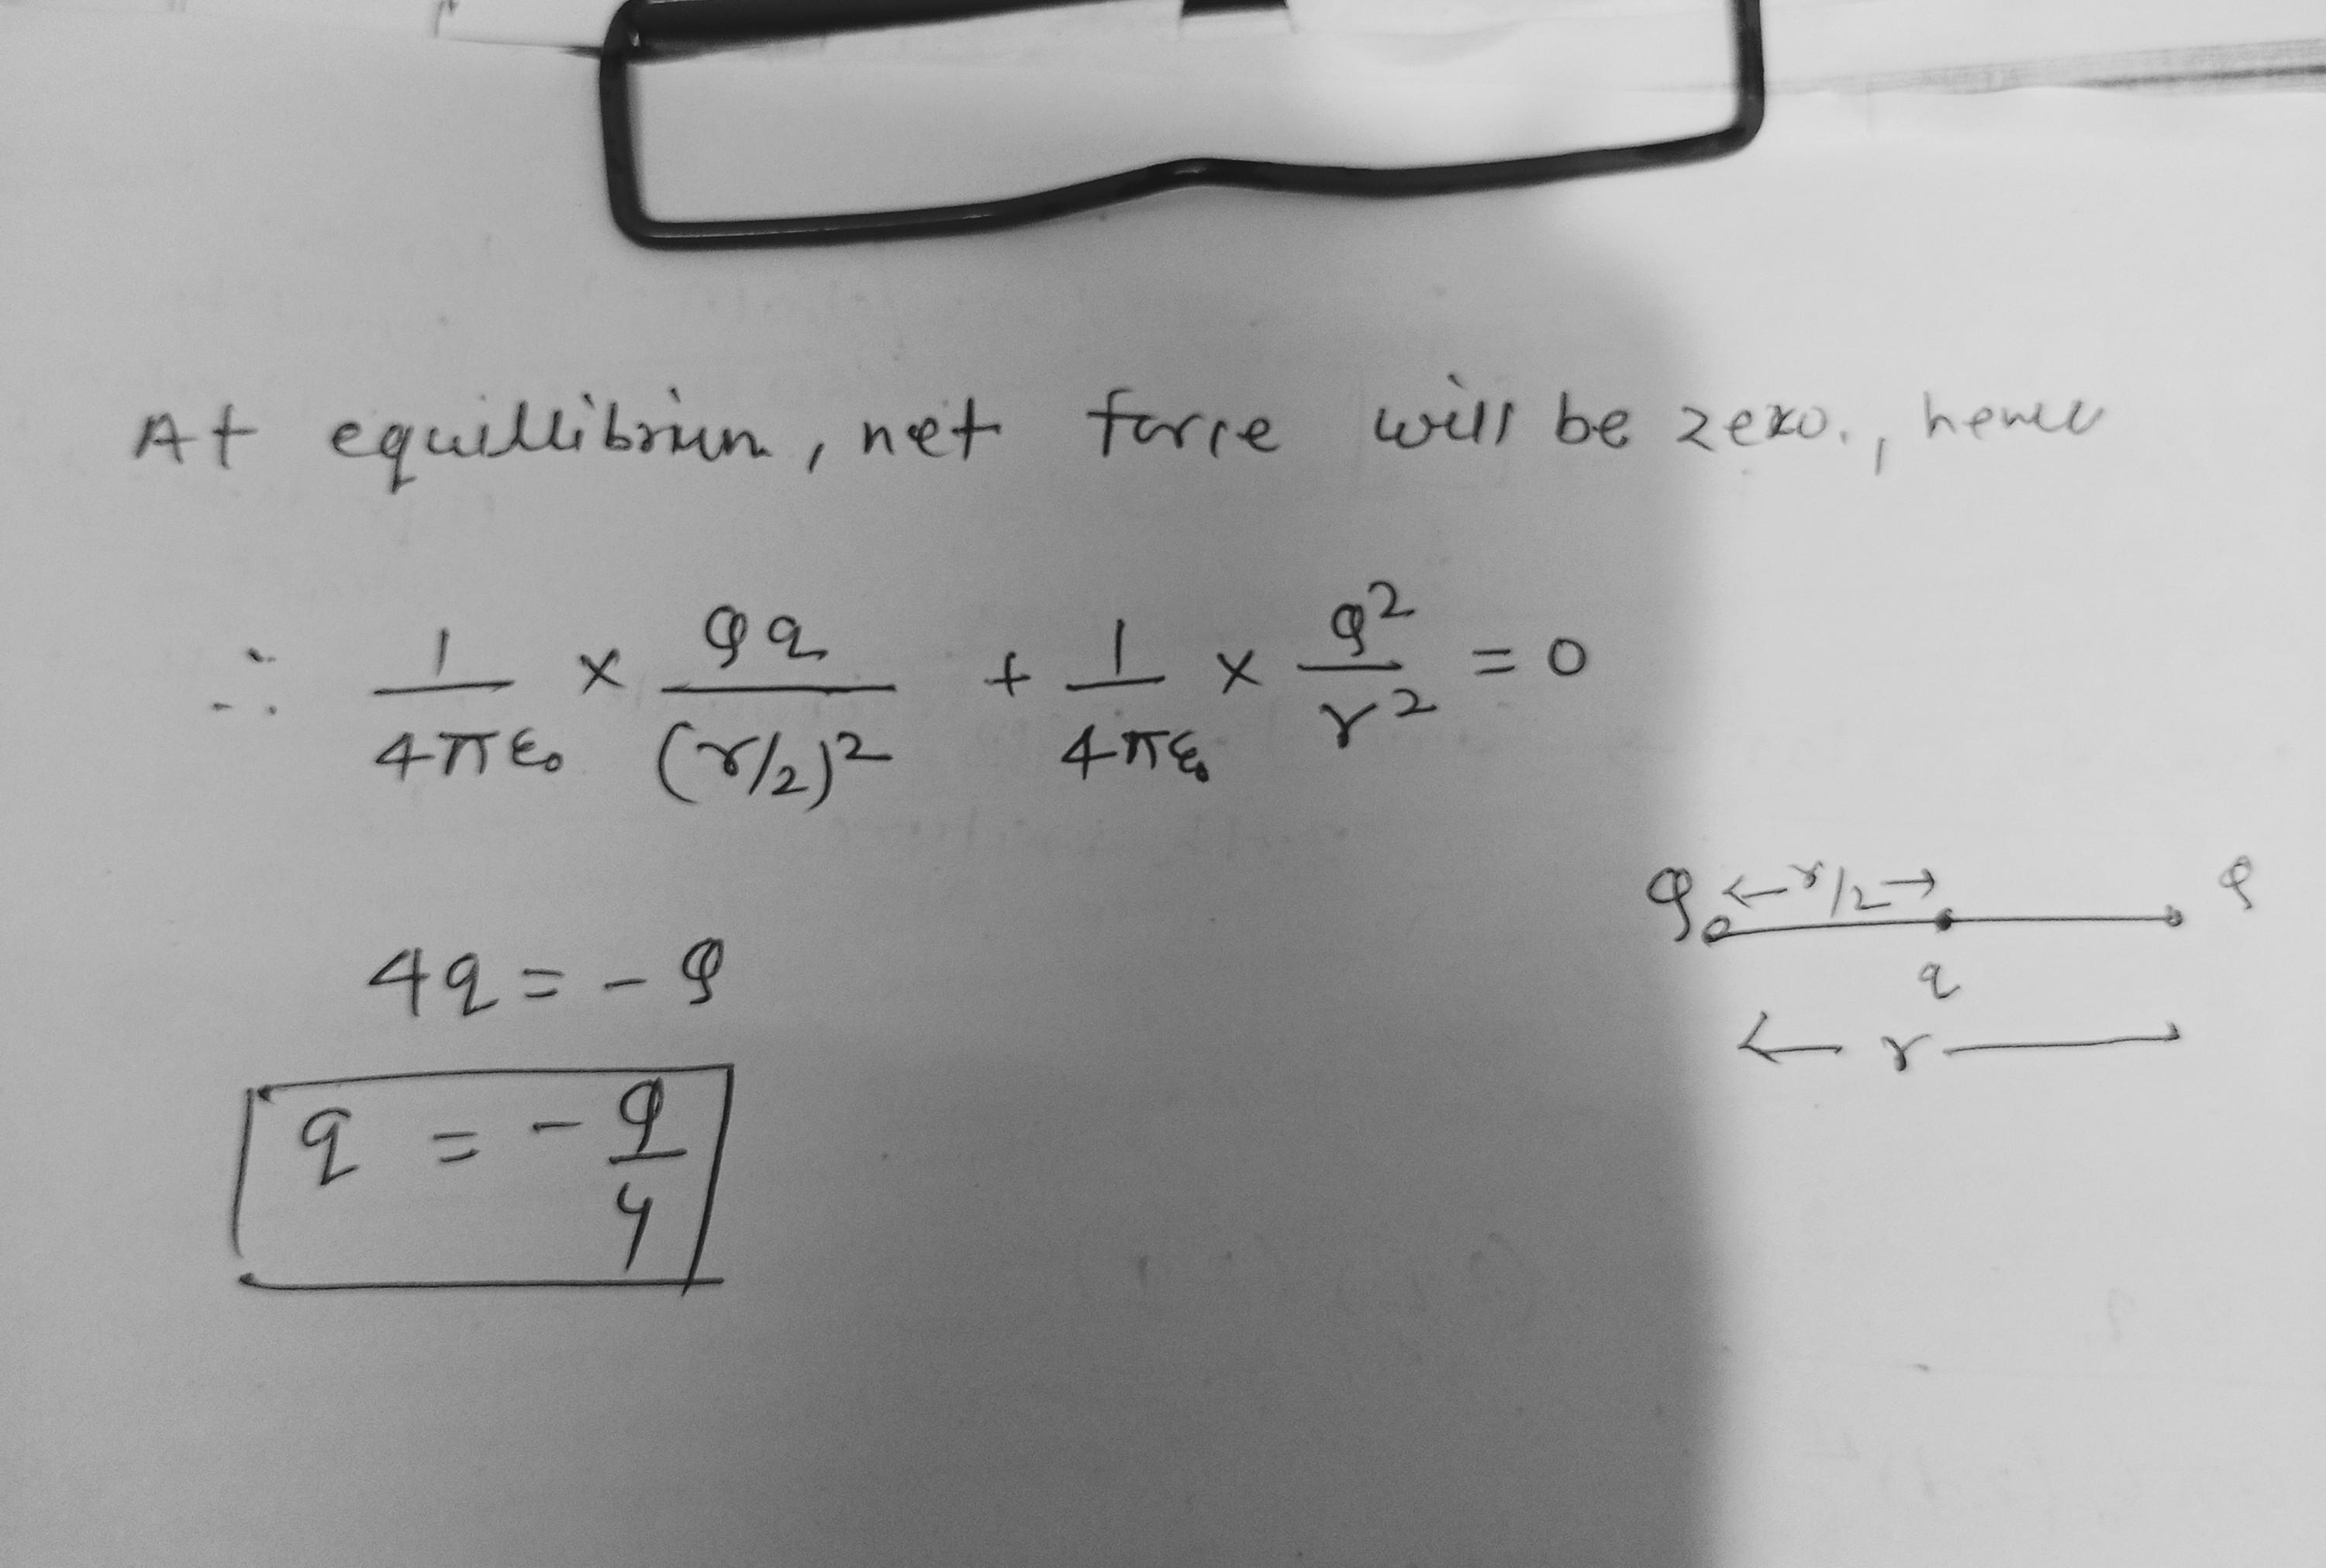 At equillibrium, net force will be zero., hence
∴ 1/4πε₀ × Qq/(r/2)² + 1/4πε₀ × Q²/r² = 0
Q ← r/2 → Q
q
← r →
4q = - Q
q = - Q/4